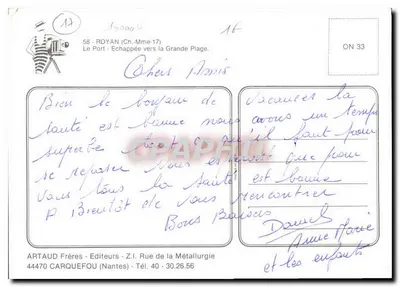 17
16
58 - ROYAN (Ch.-Mme-17)
Le Port - Echappée vers la Grande Plage.
ON 33
Chers Amis
Bien le bonjour de
vacances la
santé est bonne nous avons un temps
superbe c'est ce qu'il faut pour
se reposer nous espérons que pour
vous tous la santé est bonne
A Bientôt de vous rencontrer
Bons Baisers
Daniel
Anne Marie
et les enfants
ARTAUD Frères - Editeurs - Z.I. Rue de la Métallurgie
44470 CARQUEFOU (Nantes) - Tél. 40 - 30.26.56